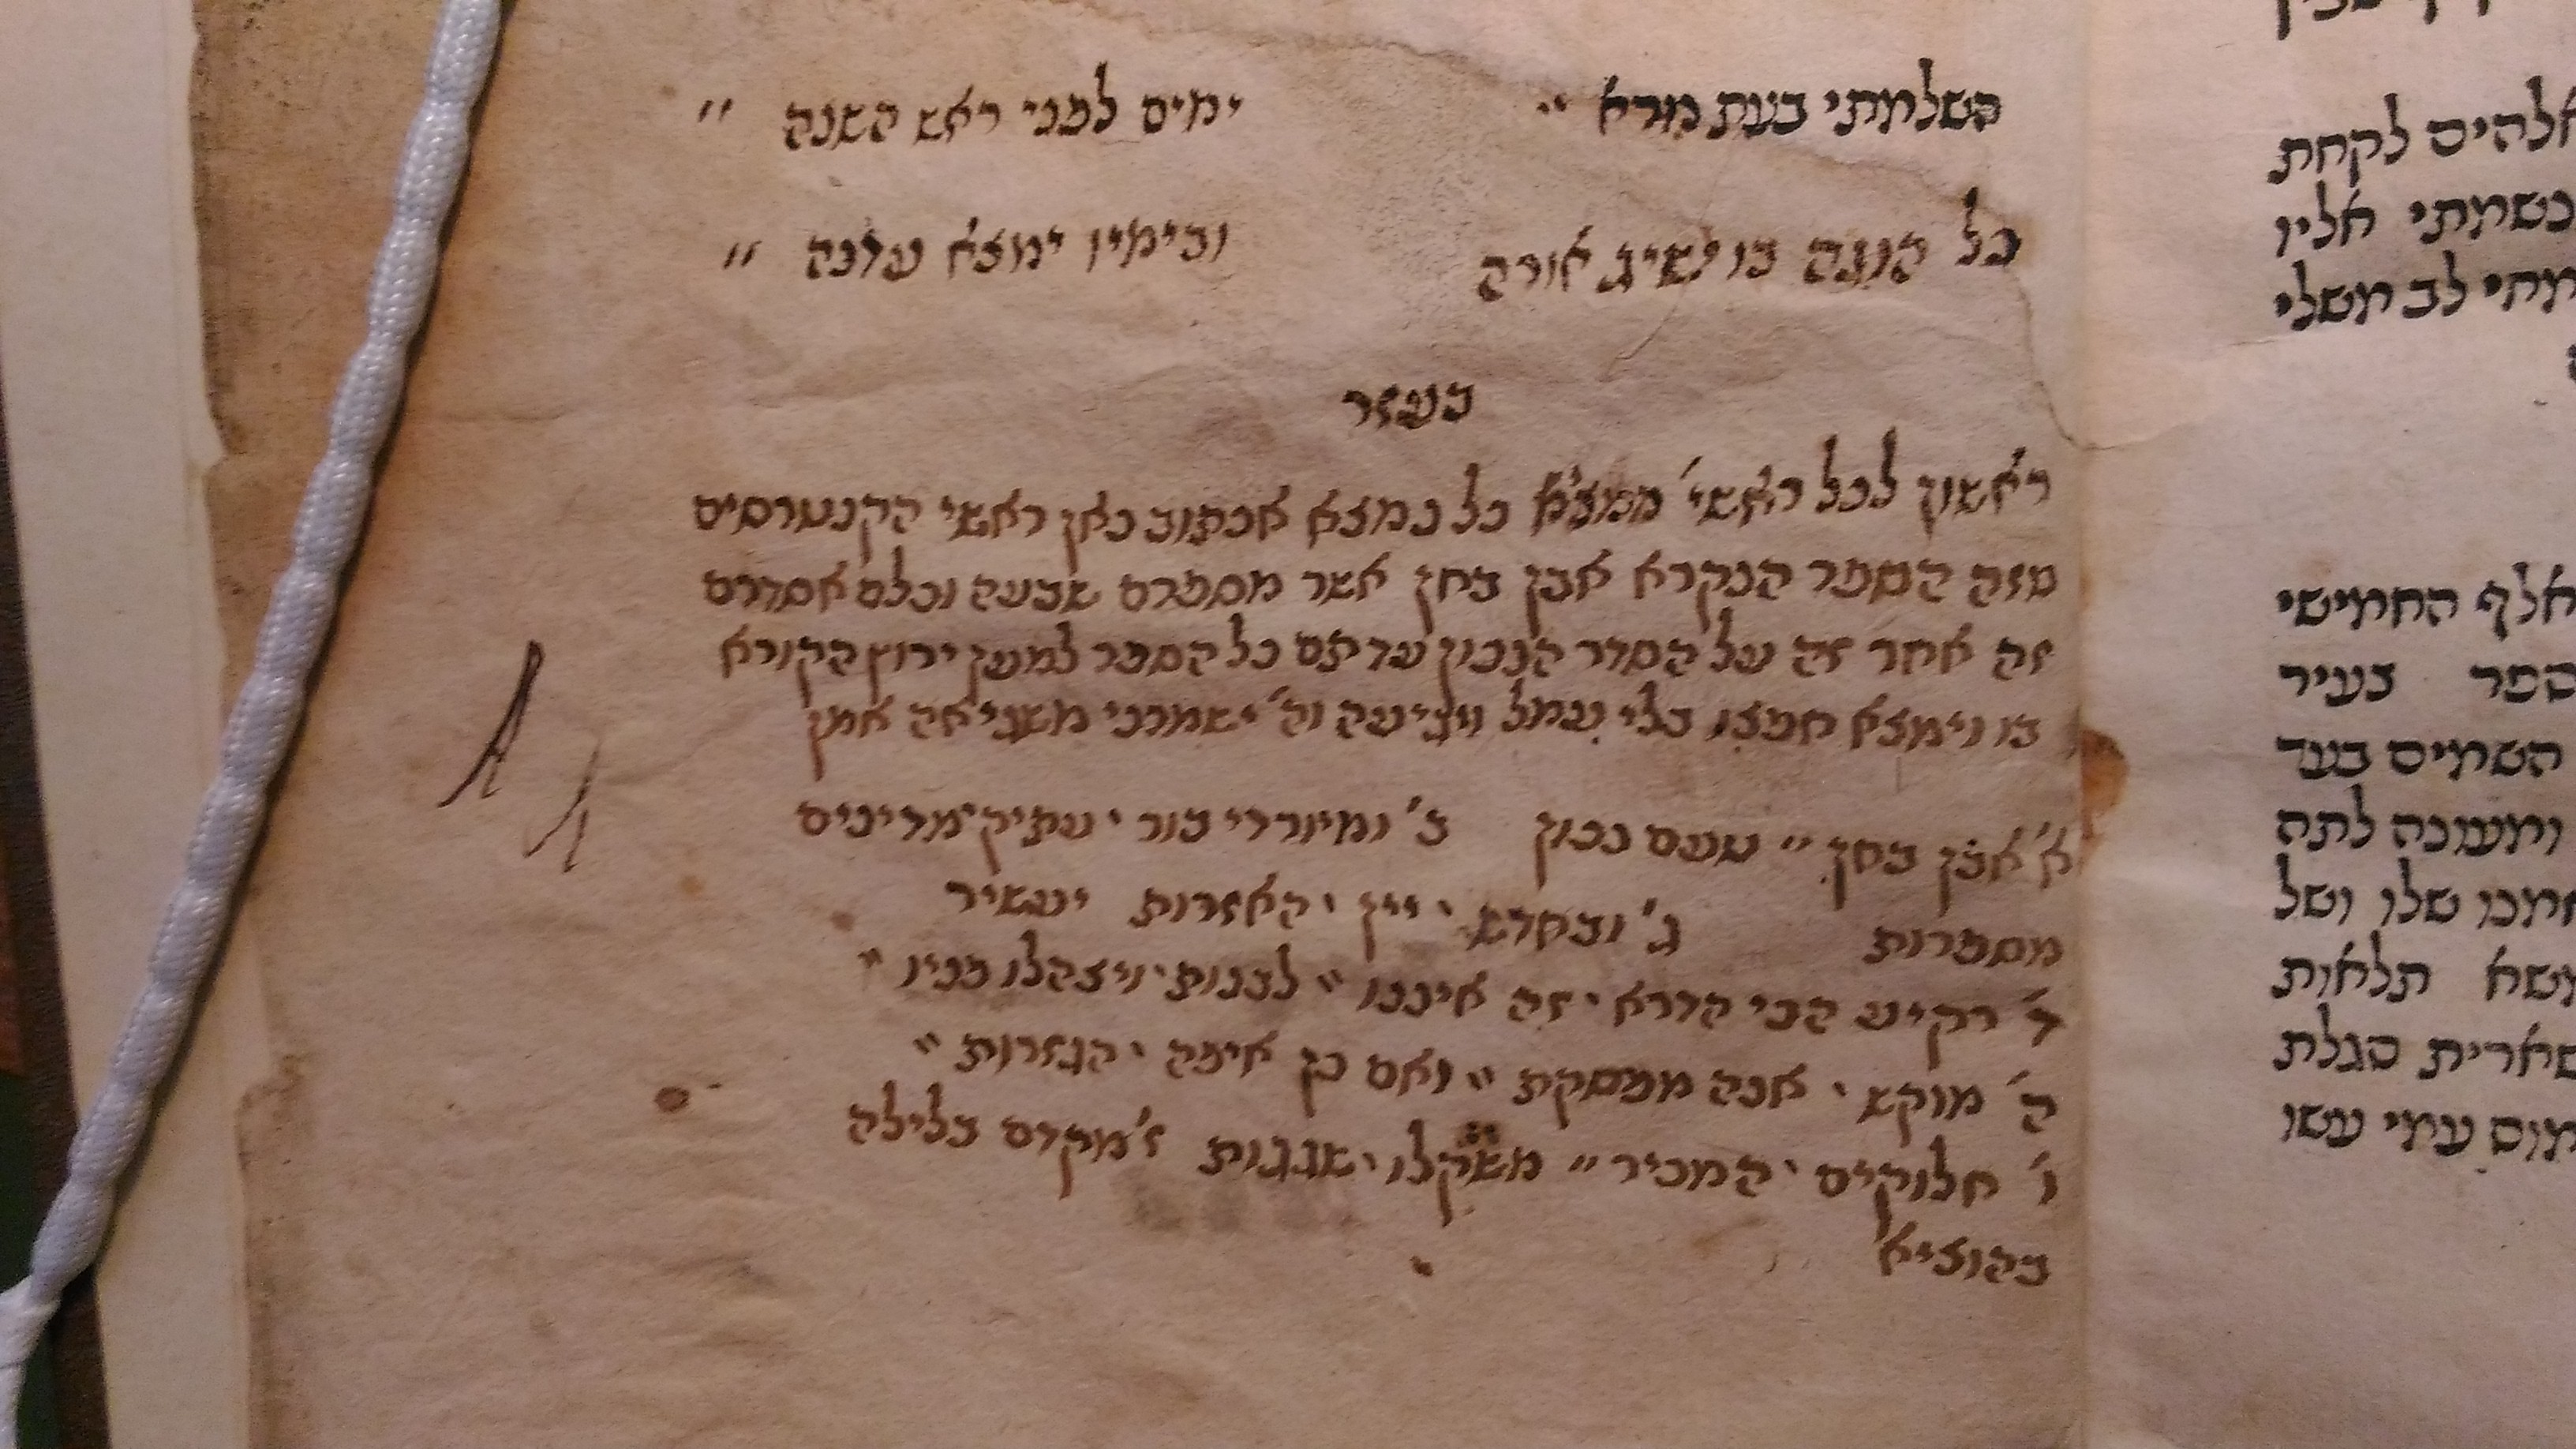 השלמתי בעת מרא " ימים לפני ראש השנה "
כל הוגה בו ישיג אורה ובימיו ימצא עדנה "
בעזר
ראשון לכל ראשי' ממצי'א כל נמצא אכתוב כאן ראשי הקנטרסים
מזה הספר הנקרא אבן בחן אשר מספרם שבעה וכלם אסדרם
זה אחר זה על הסדר הנכון עד תם כל הספר למען ירוץ הקורא
בו וימצא חפצו בלי עמל ויגיעה וה' ישמרני משגיאה אמן
א' אבן בחן " טעם נכון ב' ומיורדי בור · עתיק מדינים
מספרות ג' ובחדש · יין · האזרות יעשיר
ד' רקיע הכי הדרא · זה איננו " לבנות · ויצהלו פניו "
ה' מוקש · אנה מפסקת " ואם כן איפה · הגזרות "
ו' חלוקים · המכיר " משקלו · שגגות ז' מקדם בלילה
בהוציא
אלהים לקחת
שמתי אליו
לב משלי
אלף החמישי
ספר בעיר
השמים בעד
ומעונה לתה
שלו ושל
משא תלאות
שארית סגלת
עמי עשו